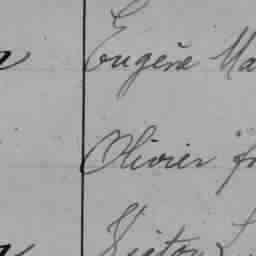 Eugène Ma
Olivier fr
Victor L